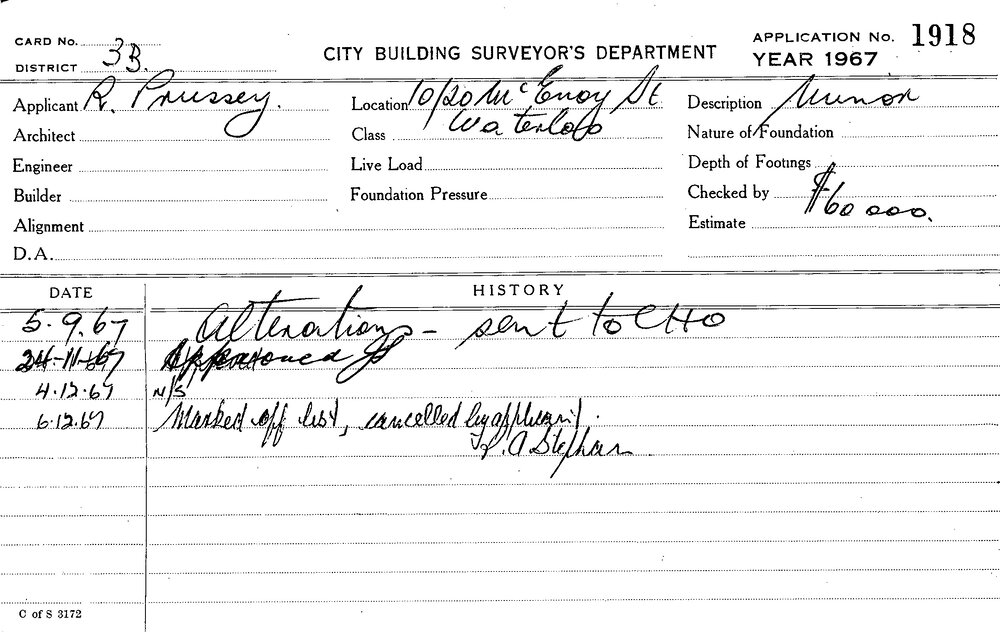 CARD No.
DISTRICT 3B.
CITY BUILDING SURVEYOR'S DEPARTMENT
APPLICATION No. 1918
YEAR 1967
Applicant R. Prussey.
Location 10/20 McEvoy St
Waterloo
Description Minor
Architect
Class
Nature of Foundation
Engineer
Live Load
Depth of Footings
Builder
Foundation Pressure
Checked by
Alignment
Estimate $60 000.
D.A.
DATE
HISTORY
5.9.67 Alterations - sent to CHO
24-11-67 Approved
4.12.67 N/S
6.12.67 Marked off list, cancelled by applicant.
A Stephan
C of S 3172